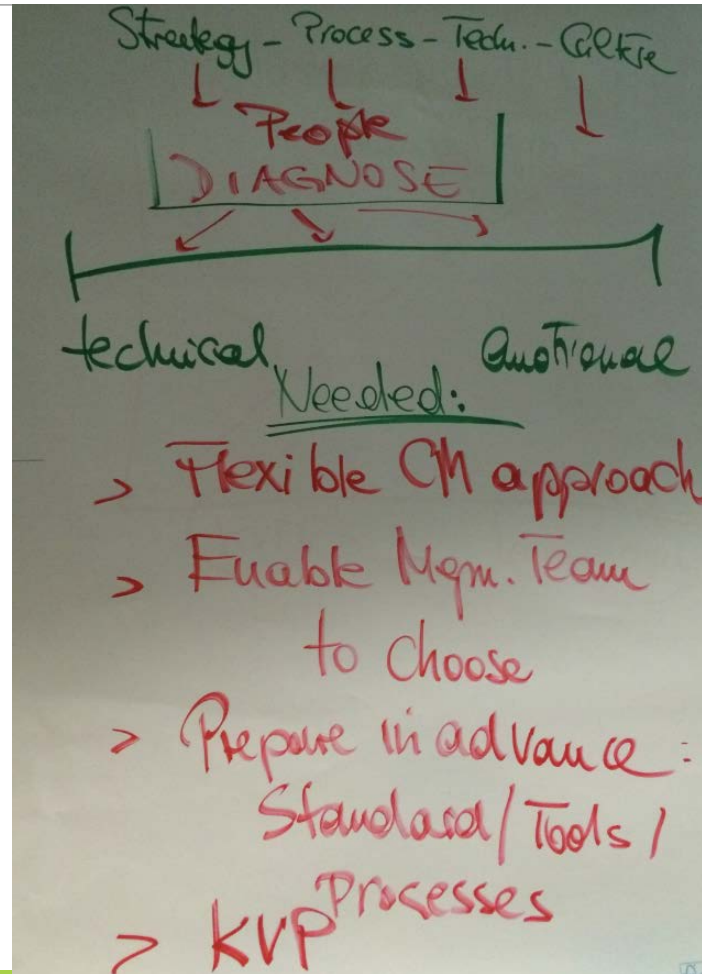 Strategy - Process - Techn. - Culture
People
DIAGNOSE
technical emotional
Needed:
> Flexible CM approach
> Enable Mgm. Team
to choose
> Prepare in advance:
Standard/Tools/
Processes
> KVP